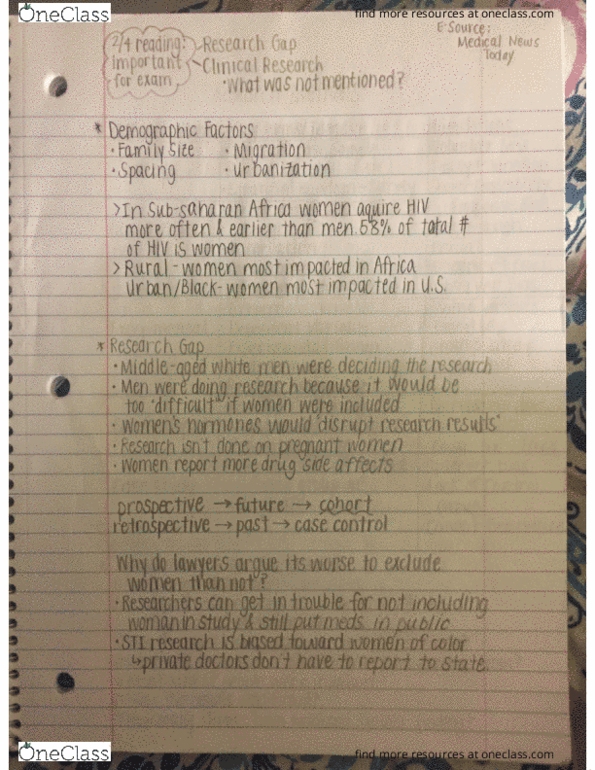 OneClass
find more resources at oneclass.com
2/4 reading:
important
for exam
Research Gap
Clinical Research
•What was not mentioned?
E-Source:
Medical News
Today
* Demographic Factors
•Family Size •Migration
•Spacing •Urbanization
>In Sub-saharan Africa women aquire HIV
more often & earlier than men. 58% of total #
of HIV is women
>Rural-women most impacted in Africa
Urban/Black-women most impacted in U.S.
* Research Gap
•Middle-aged white men were deciding the research
•Men were doing research because it would be
too "difficult" if women were included
•Women's hormones would "disrupt research results"
•Research isn't done on pregnant women
•Women report more drug side affects
prospective → future → cohort
retrospective → past → case control
Why do lawyers argue its worse to exclude
women than not?
•Researchers can get in trouble for not including
woman in study & still put meds in public
•STI research is biased toward women of color
↳private doctors don't have to report to state.
OneClass
find more resources at oneclass.com